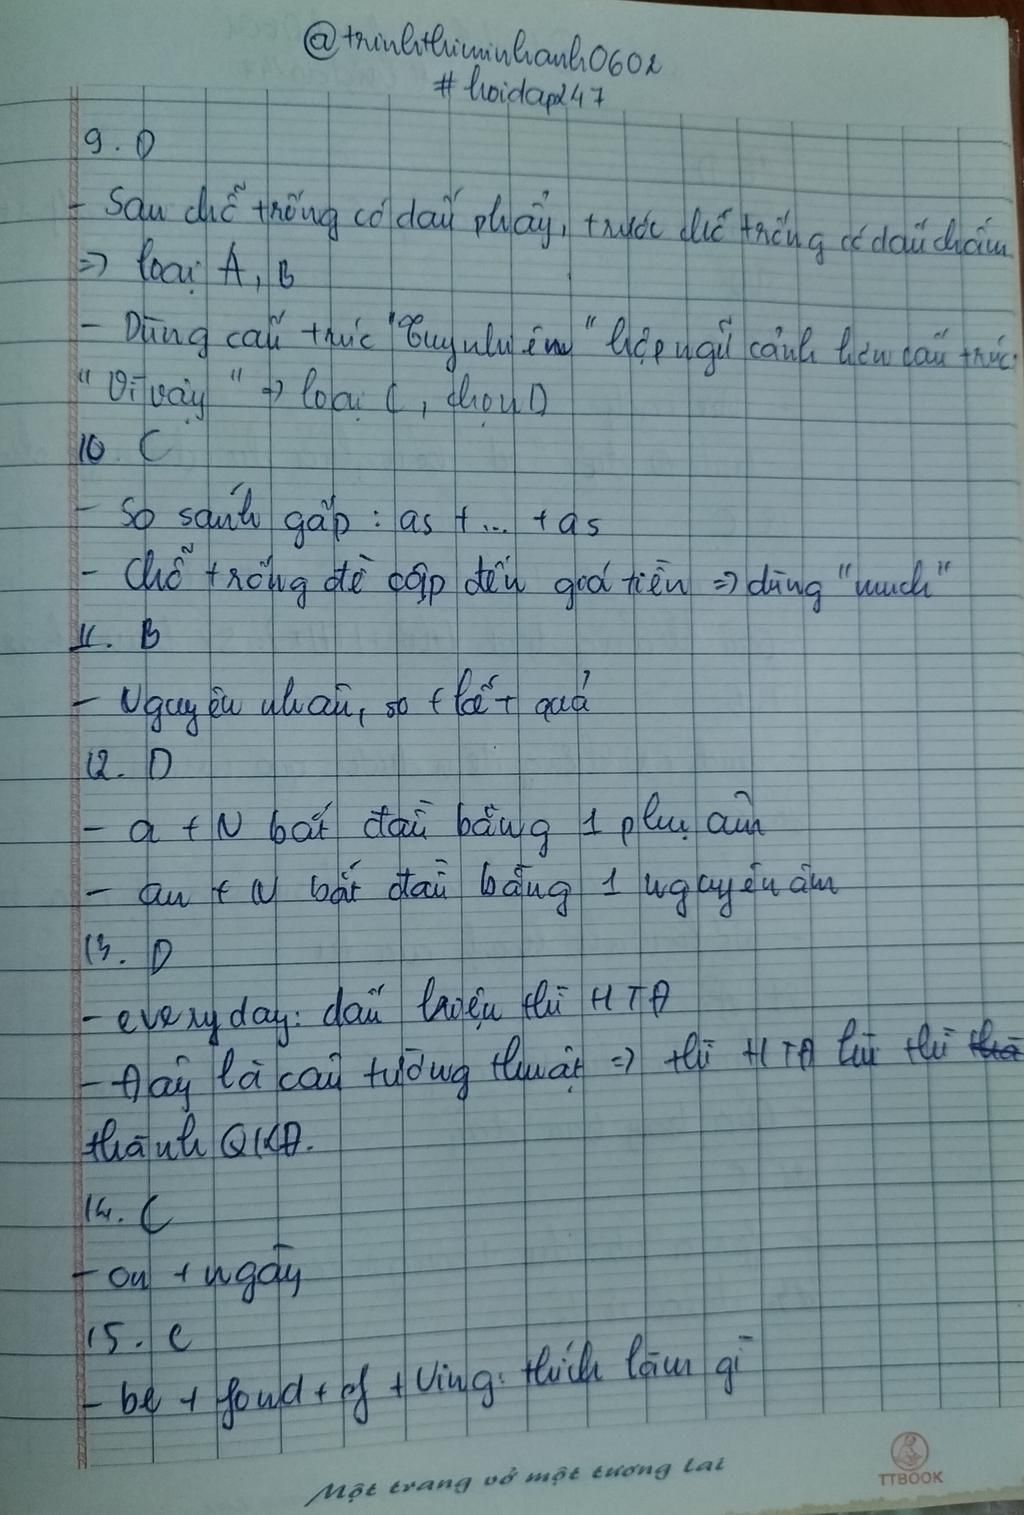 @trinhthiminhanh0602
#hoidap247
9. D
- Sau chỗ trống có dấu phẩy, trước chỗ trống có dấu chấm
=> loại A, B
- Dùng cấu trúc "Tuy nhiên" hợp ngữ cảnh hơn cấu trúc
"Vì vậy" => loại C, chọn D
10. C
- So sánh gấp : as + ... + as
- Chỗ trống đề cập đến giá tiền => dùng "much"
11. B
- Nguyên nhân, so + kết quả
12. D
- a + N bắt đầu bằng 1 phụ âm
- an + N bắt đầu bằng 1 nguyên âm
13. D
- everyday: dấu hiệu thì HTĐ
- Đây là câu tường thuật => thì HTĐ lùi thì
thành QKĐ.
14. C
- on + ngày
15. C
- be + fond + of + Ving: thích làm gì
Một trang vở một tương lai
TTBOOK